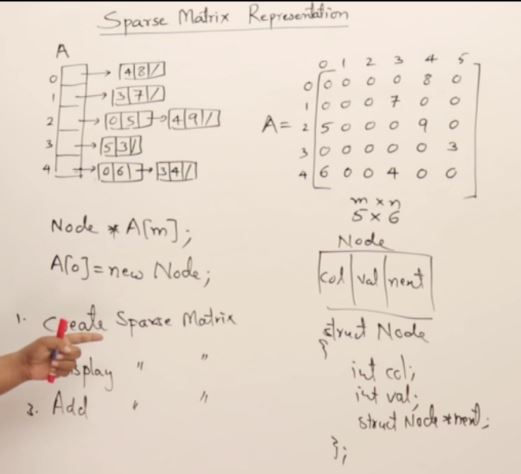 Sparse Matrix Representation
A
0 → 4 8 /
1 → 3 7 /
2 → 0 5 → 4 9 /
3 → 5 3 /
4 → 0 6 → 3 4 /
0 1 2 3 4 5
0 0 0 0 0 8 0
1 0 0 0 7 0 0
A= 2 5 0 0 0 9 0
3 0 0 0 0 0 3
4 6 0 0 4 0 0
m × n
5 × 6
Node * A[m];
A[0]=new Node;
1. Create Sparse Matrix
splay " "
3. Add " "
Node
col val next
struct Node
{
int col;
int val;
struct Node *next;
};